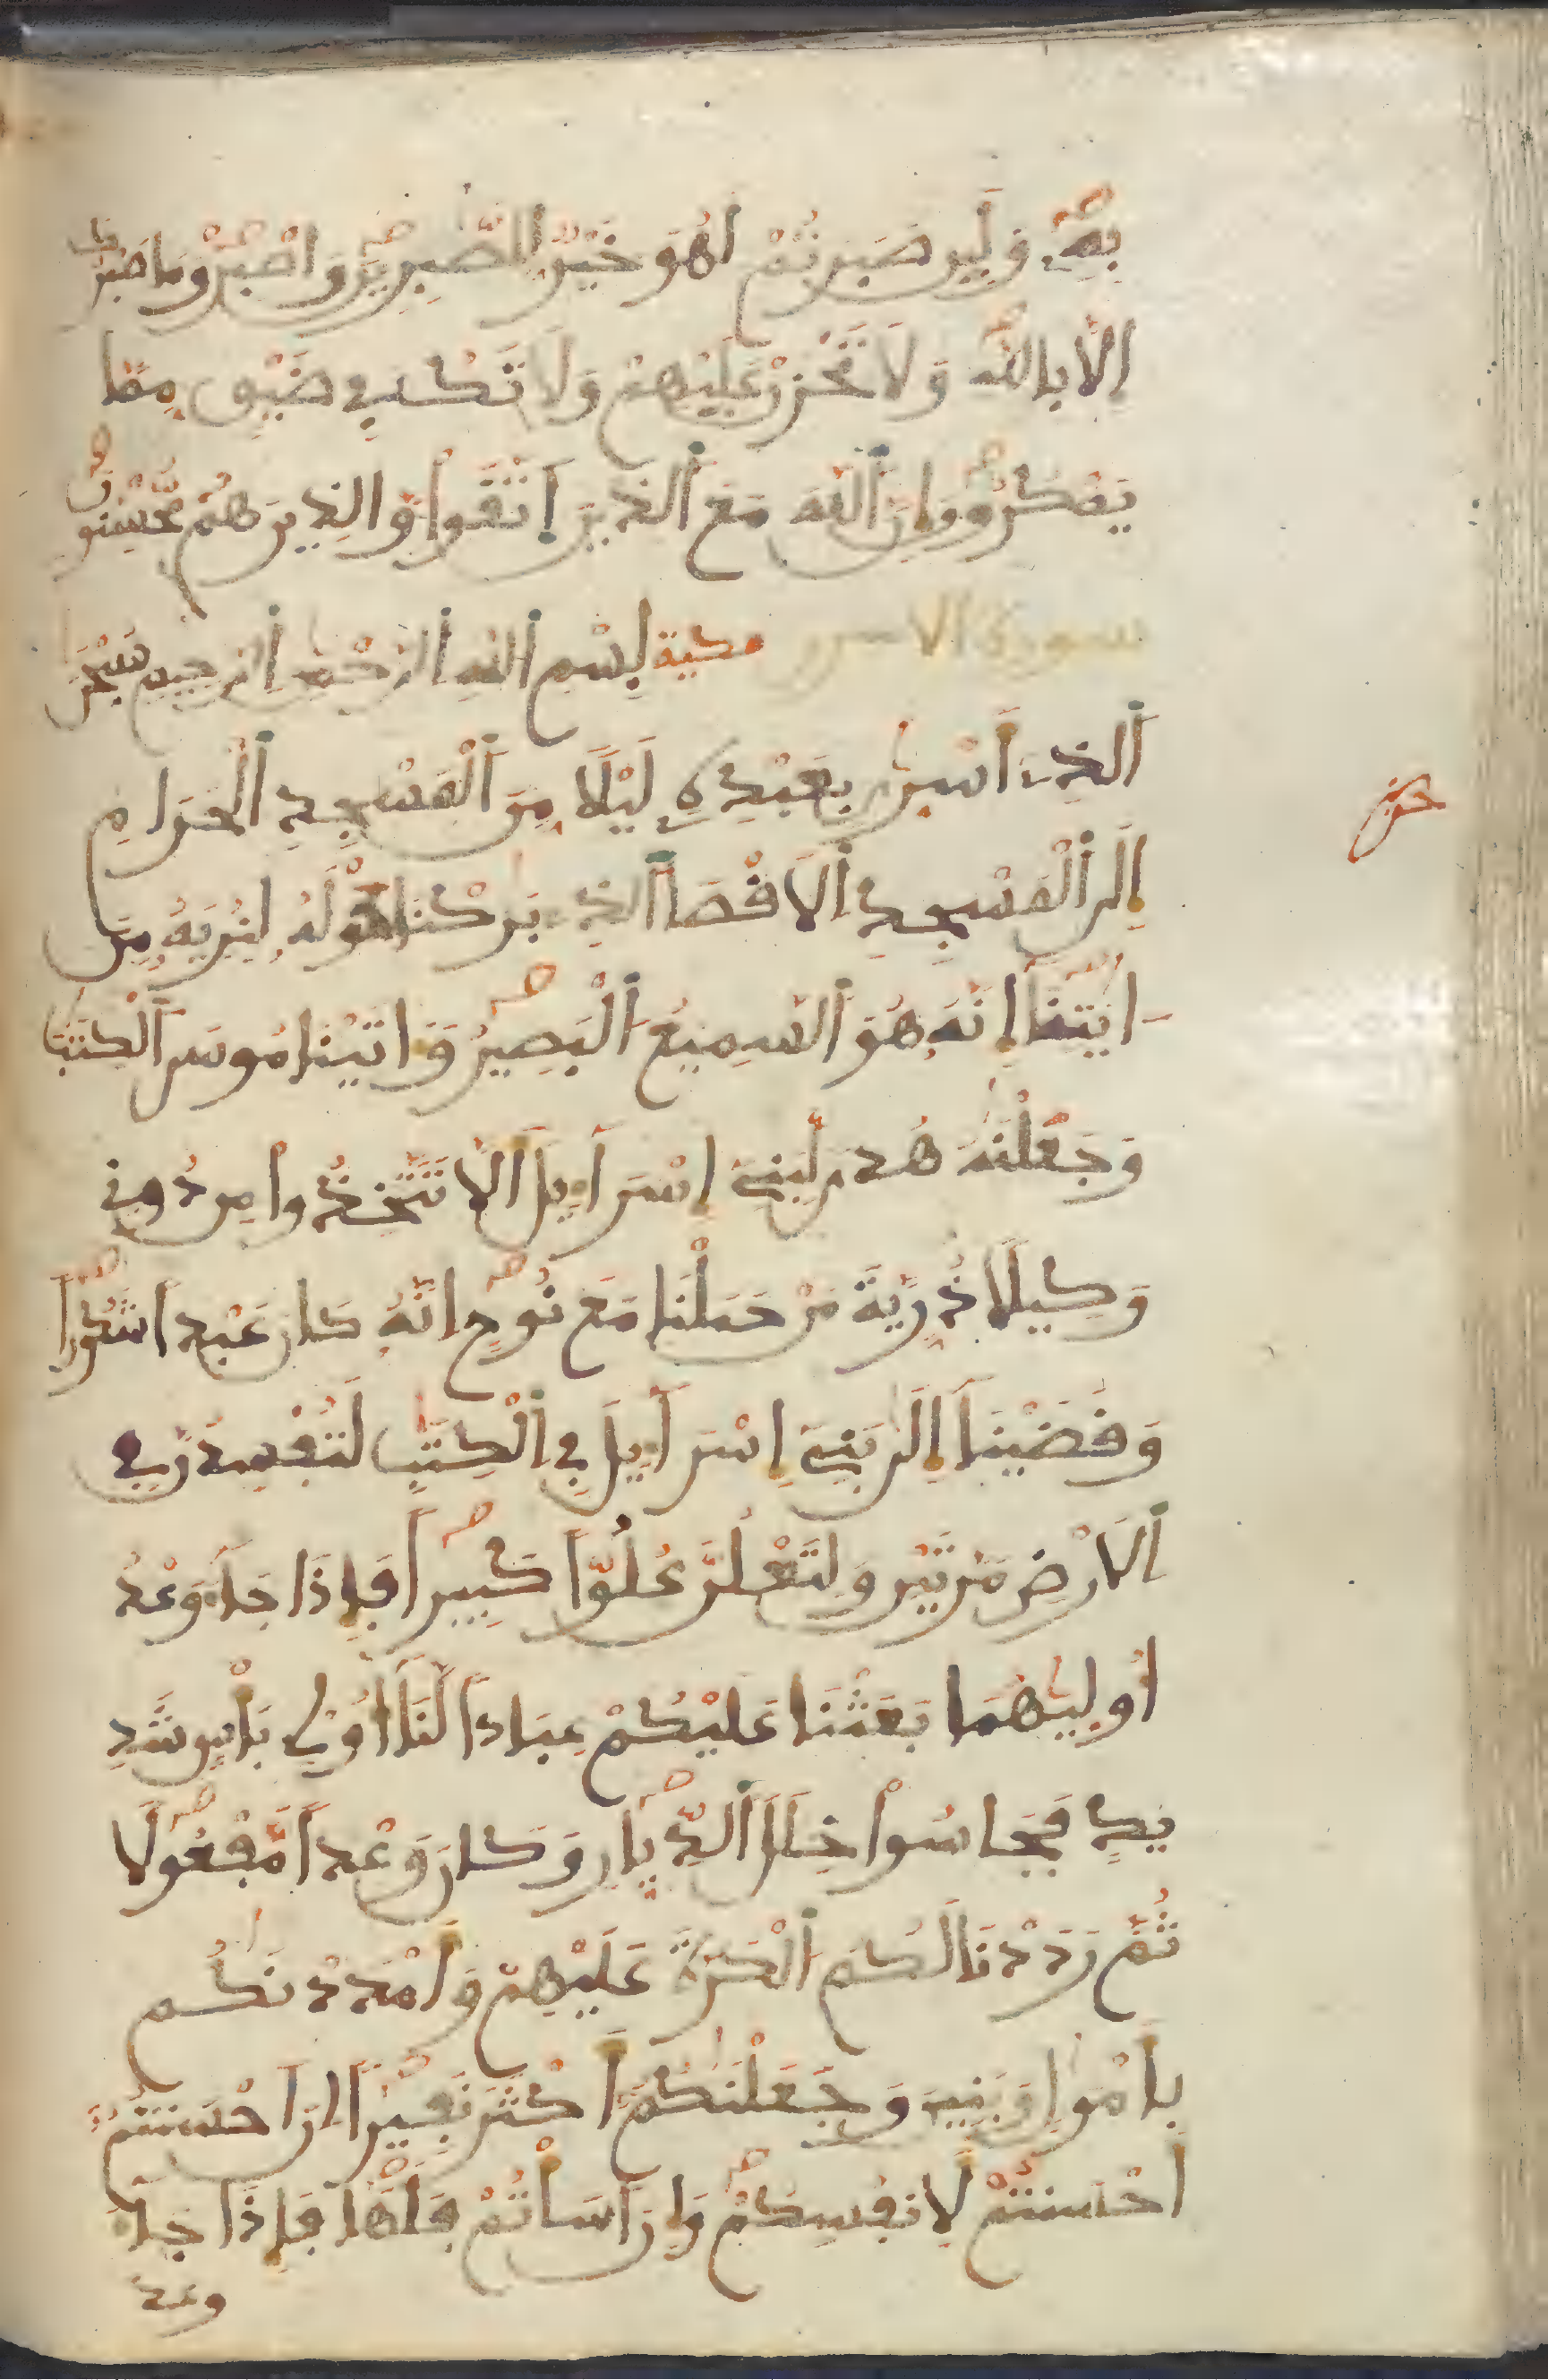 بِهِ وَلَئِن صَبَرْتُمْ لَهُوَ خَيْرٌ لِّلصَّٰبِرِينَ وَاصْبِرْ وَمَا صَبْرُكَ
إِلَّا بِاللَّهِ وَلَا تَحْزَنْ عَلَيْهِمْ وَلَا تَكُ فِي ضَيْقٍ مِّمَّا
يَمْكُرُونَ إِنَّ اَللَّهَ مَعَ اَلذِينَ اَتَّقَوا وَّالذِينَ هُم مُّحْسِنُونَ
سورة الاسرى مكية بِسْمِ اِللَّهِ اِلرَّحْمَٰنِ اِلرَّحِيمِ سُبْحَٰنَ
اَلذِے أَسْرَىٰ بِعَبْدِهِ لَيْلًا مِّنَ اَلْمَسْجِدِ اِلْحَرَامِ
إِلَى اَلْمَسْجِدِ اِلَاقْصَا اَلذِے بَٰرَكْنَا حَوْلَهُ لِنُرِيَهُ مِنَ
ايَٰتِنَا إِنَّهُ هُوَ اَلسَّمِيعُ اَلْبَصِيرُ وَءَاتَيْنَا مُوسَى اَلْكِتَٰبَ
وَجَعَلْنَٰهُ هُدًى لِّبَنِے إِسْرَآءِيلَ أَلَّا تَتَّخِذُوا مِن دُونِے
وَكِيلًا ذُرِّيَّةَ مَنْ حَمَلْنَا مَعَ نُوحٍ اِنَّهُ كَانَ عَبْدًا شَكُورًا
وَقَضَيْنَا إِلَىٰ بَنِے إِسْرَآءِيلَ فِے اِلْكِتَٰبِ لَتُفْسِدُنَّ فِے
اِلَارْضِ مَرَّتَيْنِ وَلَتَعْلُنَّ عُلُوًّا كَبِيرًا فَإِذَا جَآءَ وَعْدُ
أُولَيٰهُمَا بَعَثْنَا عَلَيْكُمْ عِبَادًا لَّنَا أُوْلِے بَأْسٍ شَدِ
يدٍ فَجَاسُوا خِلَٰلَ اَلدِّيَارِ وَكَانَ وَعْدًا مَّفْعُولًا
ثُمَّ رَدَدْنَا لَكُمُ اَلْكَرَّةَ عَلَيْهِمْ وَأَمْدَدْنَٰكُم
بِأَمْوَٰلٍ وَبَنِينَ وَجَعَلْنَٰكُمْ أَكْثَرَ نَفِيرًا اِنَ اَحْسَنتُمُ
أَحْسَنتُمْ لِأَنفُسِكُمْ وَإِنَ اَسَأْتُمْ فَلَهَا فَإِذَا جَآءَ
وعد
حزب